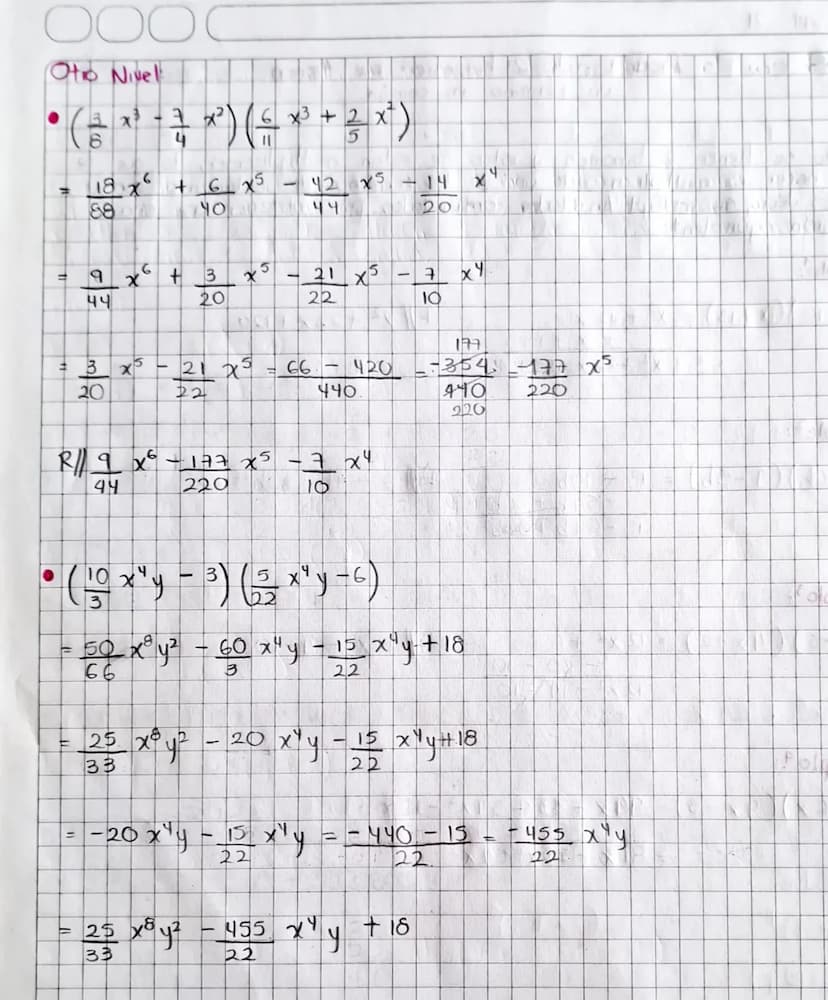 Otro Nivel
• (3/8 x³ - 7/4 x²)(6/11 x³ + 2/5 x²)
= 18/88 x⁶ + 6/40 x⁵ - 42/44 x⁵ - 14/20 x⁴
= 9/44 x⁶ + 3/20 x⁵ - 21/22 x⁵ - 7/10 x⁴
= 3/20 x⁵ - 21/22 x⁵ = 66 - 420/440 = -354/440 177/220 = -177/220 x⁵
R// 9/44 x⁶ - 177/220 x⁵ - 7/10 x⁴
• (10/3 x⁴y - 3)(5/22 x⁴y - 6)
= 50/66 x⁸y² - 60/3 x⁴y - 15/22 x⁴y + 18
= 25/33 x⁸y² - 20 x⁴y - 15/22 x⁴y + 18
= -20 x⁴y - 15/22 x⁴y = -440 - 15/22 = -455/22 x⁴y
= 25/33 x⁸y² - 455/22 x⁴y + 18